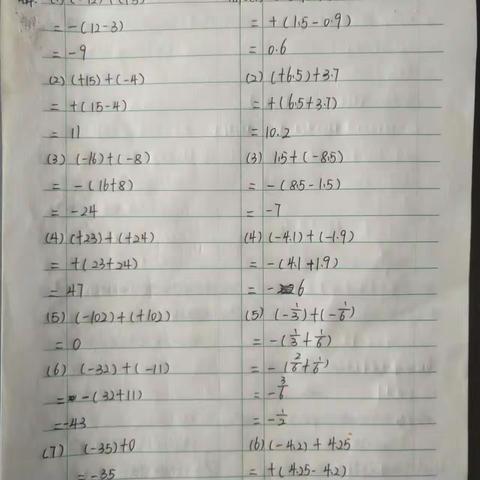 = -(12-3)
= -9
(2) (+15)+(-4)
= +(15-4)
= 11
(3) (-16)+(-8)
= -(16+8)
= -24
(4) (+23)+(+24)
= +(23+24)
= 47
(5) (-102)+(+102)
= 0
(6) (-32)+(-11)
= -(32+11)
=-43
(7) (-35)+0
= -35
= +(1.5-0.9)
= 0.6
(2) (+6.5)+3.7
= +(6.5+3.7)
= 10.2
(3) 1.5+(-8.5)
= -(8.5-1.5)
= -7
(4) (-4.1)+(-1.9)
= -(4.1+1.9)
= -6
(5) (-1/3)+(-1/6)
= -(1/3+1/6)
= -(2/6+1/6)
= -3/6
= -1/2
(6) (-4.2)+4.25
= +(4.25-4.2)